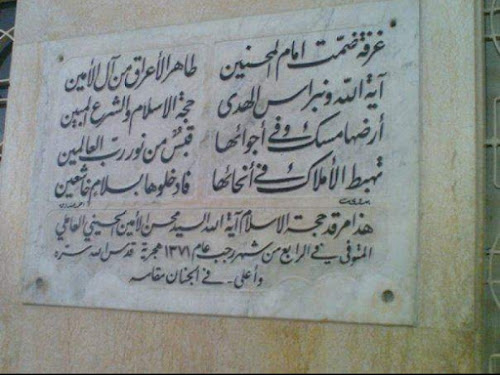 غرفة ضمّت امام المحسنين طاهر الأعراق من آل الأمين
آية الله ونبراس الهدى حجة الاسلام والشرع المبين
أرضها مسك وفي أجوائها قبسٌ من نور ربّ العالمين
تهبط الأملاك في أنحائها فادخلوها بسلام خاشعين
هذا مرقد حجة الاسلام آية الله السيد محسن الأمين الحسيني العاملي
المتوفى في الرابع من شهر رجب عام ١٣٧١ هجرية قدس الله سره
وأعلى في الجنان مقامه